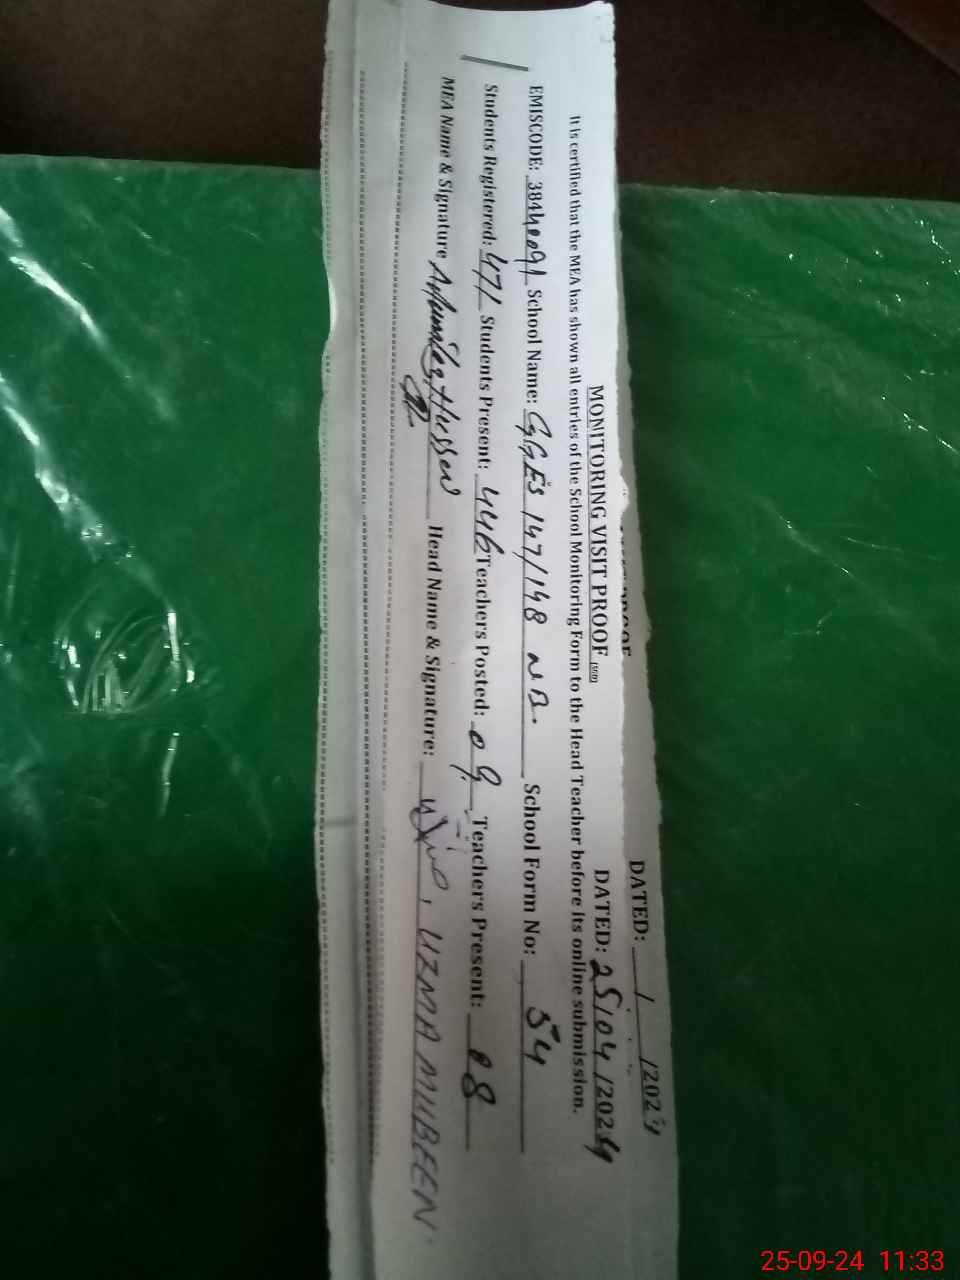 DATED: / /2024
MONITORING VISIT PROOF DATED: 25/04/2024
It is certified that the MEA has shown all entries of the School Monitoring Form to the Head Teacher before its online submission.
EMISCODE: 38440091 School Name: GGES 147/148 NB. School Form No: 54
Students Registered: 471 Students Present: 446 Teachers Posted: 09 Teachers Present: 08
MEA Name & Signature Hussen Head Name & Signature: UZMA MUBEEN
25-09-24 11:33